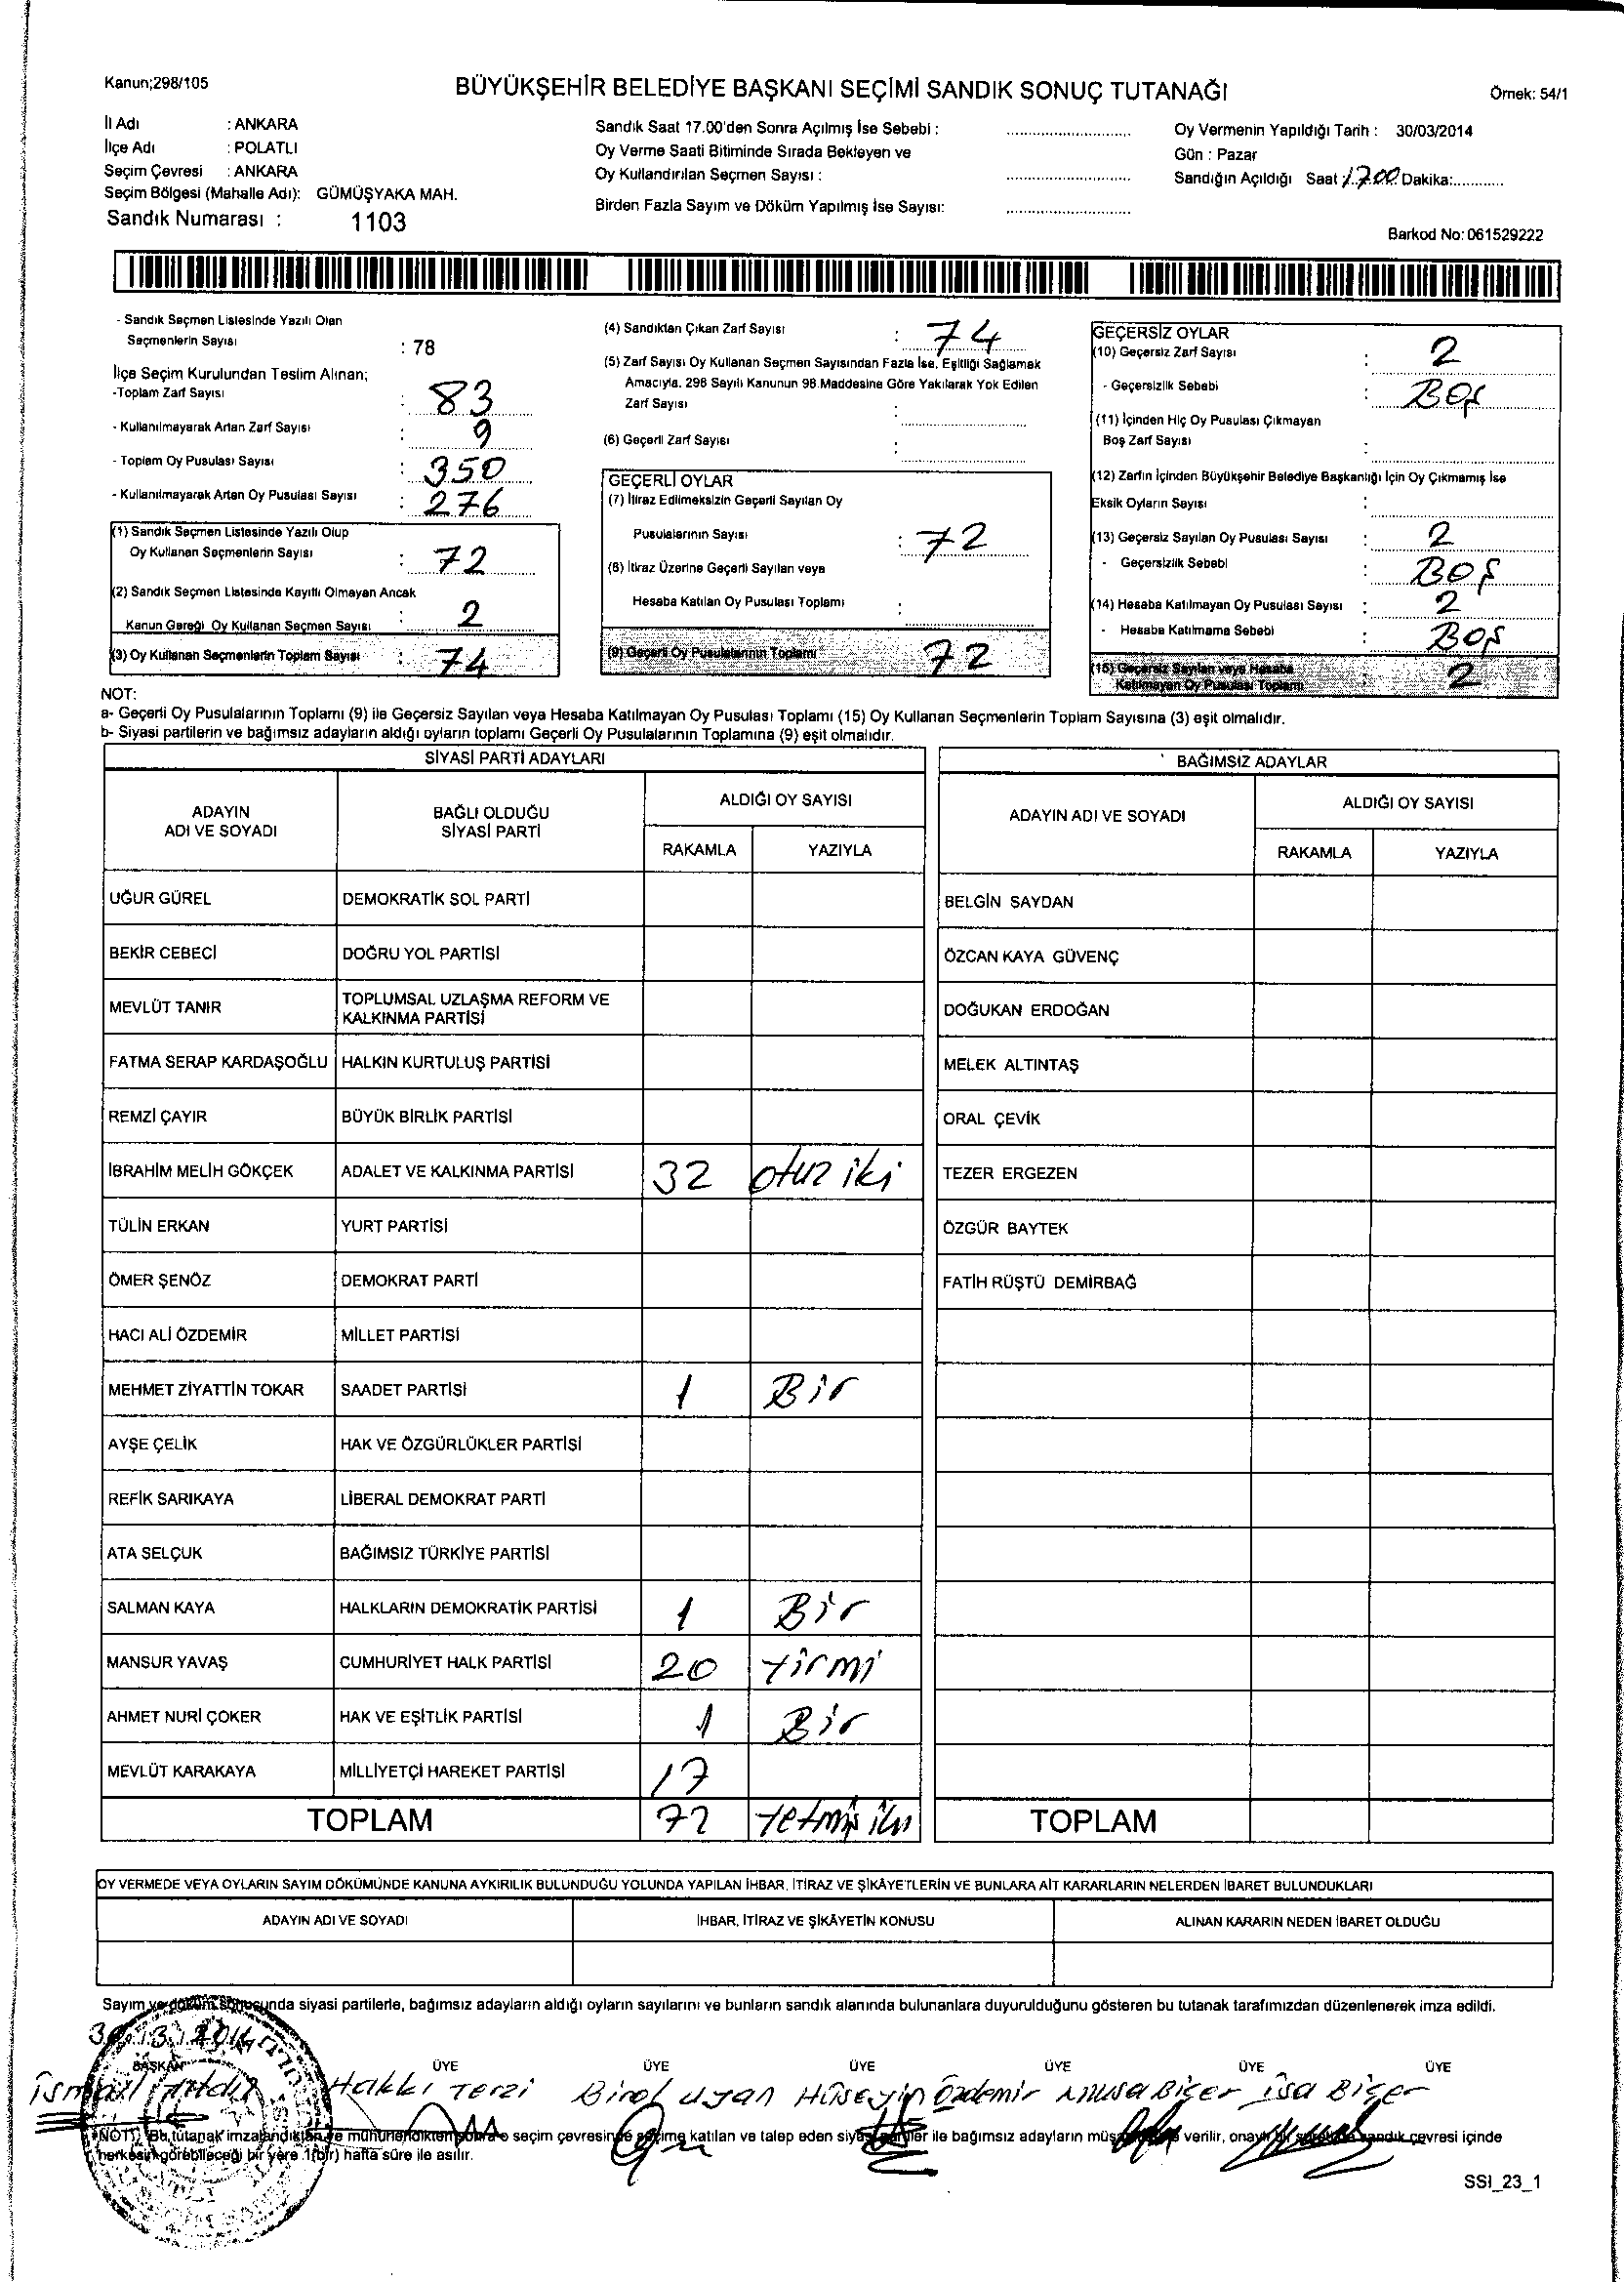 Kanun;298/105
BÜYÜKŞEHİR BELEDİYE BAŞKANI SEÇİMİ SANDIK SONUÇ TUTANAĞI
Örnek: 54/1
İl Adı : ANKARA
İlçe Adı : POLATLI
Seçim Çevresi : ANKARA
Seçim Bölgesi (Mahalle Adı): GÜMÜŞYAKA MAH.
Sandık Numarası : 1103
Sandık Saat 17.00'den Sonra Açılmış İse Sebebi :
Oy Verme Saati Bitiminde Sırada Bekleyen ve
Oy Kullandırılan Seçmen Sayısı :
Birden Fazla Sayım ve Döküm Yapılmış İse Sayısı:
Oy Vermenin Yapıldığı Tarih : 30/03/2014
Gün : Pazar
Sandığın Açıldığı Saat 17.00 Dakika:
Barkod No: 061529222
- Sandık Seçmen Listesinde Yazılı Olan
Seçmenlerin Sayısı : 78
İlçe Seçim Kurulundan Teslim Alınan;
-Toplam Zarf Sayısı : 83
- Kullanılmayarak Artan Zarf Sayısı : 9
- Toplam Oy Pusulası Sayısı : 350
- Kullanılmayarak Artan Oy Pusulası Sayısı : 276
(1) Sandık Seçmen Listesinde Yazılı Olup
Oy Kullanan Seçmenlerin Sayısı : 72
(2) Sandık Seçmen Listesinde Kayıtlı Olmayan Ancak
Kanun Gereği Oy Kullanan Seçmen Sayısı : 2
(3) Oy Kullanan Seçmenlerin Toplam Sayısı : 74
(4) Sandıktan Çıkan Zarf Sayısı : 74
(5) Zarf Sayısı Oy Kullanan Seçmen Sayısından Fazla İse, Eşitliği Sağlamak
Amacıyla, 298 Sayılı Kanunun 98.Maddesine Göre Yakılarak Yok Edilen
Zarf Sayısı :
(6) Geçerli Zarf Sayısı :
GEÇERLİ OYLAR
(7) İtiraz Edilmeksizin Geçerli Sayılan Oy
Pusulalarının Sayısı : 72
(8) İtiraz Üzerine Geçerli Sayılan veya
Hesaba Katılan Oy Pusulası Toplamı :
(9) Geçerli Oy Pusulalarının Toplamı 72
GEÇERSİZ OYLAR
(10) Geçersiz Zarf Sayısı : 2
- Geçersizlik Sebebi : BOŞ
(11) İçinden Hiç Oy Pusulası Çıkmayan
Boş Zarf Sayısı :
(12) Zarfın İçinden Büyükşehir Belediye Başkanlığı İçin Oy Çıkmamış İse
Eksik Oyların Sayısı :
(13) Geçersiz Sayılan Oy Pusulası Sayısı : 2
- Geçersizlik Sebebi : BOŞ
(14) Hesaba Katılmayan Oy Pusulası Sayısı : 2
- Hesaba Katılmama Sebebi : BOŞ
(15) Geçersiz Sayılan veya Hesaba
Katılmayan Oy Pusulası Toplamı : 2
NOT:
a- Geçerli Oy Pusulalarının Toplamı (9) ile Geçersiz Sayılan veya Hesaba Katılmayan Oy Pusulası Toplamı (15) Oy Kullanan Seçmenlerin Toplam Sayısına (3) eşit olmalıdır.
b- Siyasi partilerin ve bağımsız adayların aldığı oyların toplamı Geçerli Oy Pusulalarının Toplamına (9) eşit olmalıdır.
SİYASİ PARTİ ADAYLARI
ADAYIN ADI VE SOYADI BAĞLI OLDUĞU SİYASİ PARTİ ALDIĞI OY SAYISI
RAKAMLA YAZIYLA
UĞUR GÜREL DEMOKRATİK SOL PARTİ
BEKİR CEBECİ DOĞRU YOL PARTİSİ
MEVLÜT TANIR TOPLUMSAL UZLAŞMA REFORM VE KALKINMA PARTİSİ
FATMA SERAP KARDAŞOĞLU HALKIN KURTULUŞ PARTİSİ
REMZİ ÇAYIR BÜYÜK BİRLİK PARTİSİ
İBRAHİM MELİH GÖKÇEK ADALET VE KALKINMA PARTİSİ 32 otuz iki
TÜLİN ERKAN YURT PARTİSİ
ÖMER ŞENÖZ DEMOKRAT PARTİ
HACI ALİ ÖZDEMİR MİLLET PARTİSİ
MEHMET ZİYATTİN TOKAR SAADET PARTİSİ 1 Bir
AYŞE ÇELİK HAK VE ÖZGÜRLÜKLER PARTİSİ
REFİK SARIKAYA LİBERAL DEMOKRAT PARTİ
ATA SELÇUK BAĞIMSIZ TÜRKİYE PARTİSİ
SALMAN KAYA HALKLARIN DEMOKRATİK PARTİSİ 1 Bir
MANSUR YAVAŞ CUMHURİYET HALK PARTİSİ 20 Yirmi
AHMET NURİ ÇOKER HAK VE EŞİTLİK PARTİSİ 1 Bir
MEVLÜT KARAKAYA MİLLİYETÇİ HAREKET PARTİSİ 17
TOPLAM 72 Yetmiş iki
BAĞIMSIZ ADAYLAR
ADAYIN ADI VE SOYADI ALDIĞI OY SAYISI
RAKAMLA YAZIYLA
BELGİN SAYDAN
ÖZCAN KAYA GÜVENÇ
DOĞUKAN ERDOĞAN
MELEK ALTINTAŞ
ORAL ÇEVİK
TEZER ERGEZEN
ÖZGÜR BAYTEK
FATİH RÜŞTÜ DEMİRBAĞ
TOPLAM
OY VERMEDE VEYA OYLARIN SAYIM DÖKÜMÜNDE KANUNA AYKIRILIK BULUNDUĞU YOLUNDA YAPILAN İHBAR, İTİRAZ VE ŞİKÂYETLERİN VE BUNLARA AİT KARARLARIN NELERDEN İBARET BULUNDUKLARI
ADAYIN ADI VE SOYADI İHBAR, İTİRAZ VE ŞİKÂYETİN KONUSU ALINAN KARARIN NEDEN İBARET OLDUĞU
Sayım ve döküm sonucunda siyasi partilerle, bağımsız adayların aldığı oyların sayılarını ve bunların sandık alanında bulunanlara duyurulduğunu gösteren bu tutanak tarafımızdan düzenlenerek imza edildi.
30.3.2014
BAŞKAN ÜYE ÜYE ÜYE ÜYE ÜYE ÜYE
İsmail Hakkı Terzi Birol uyan Hüseyin Özdemir Musa Biçer İsa Biçer
NOT: Bu tutanak imzalandıktan ve mühürlendikten sonra o seçim çevresinde seçime katılan ve talep eden siyasi partiler ile bağımsız adayların verilir, onaylı bir sandık çevresi içinde
herkesin görebileceği bir yere 1(bir) hafta süre ile asılır.
SSI_23_1